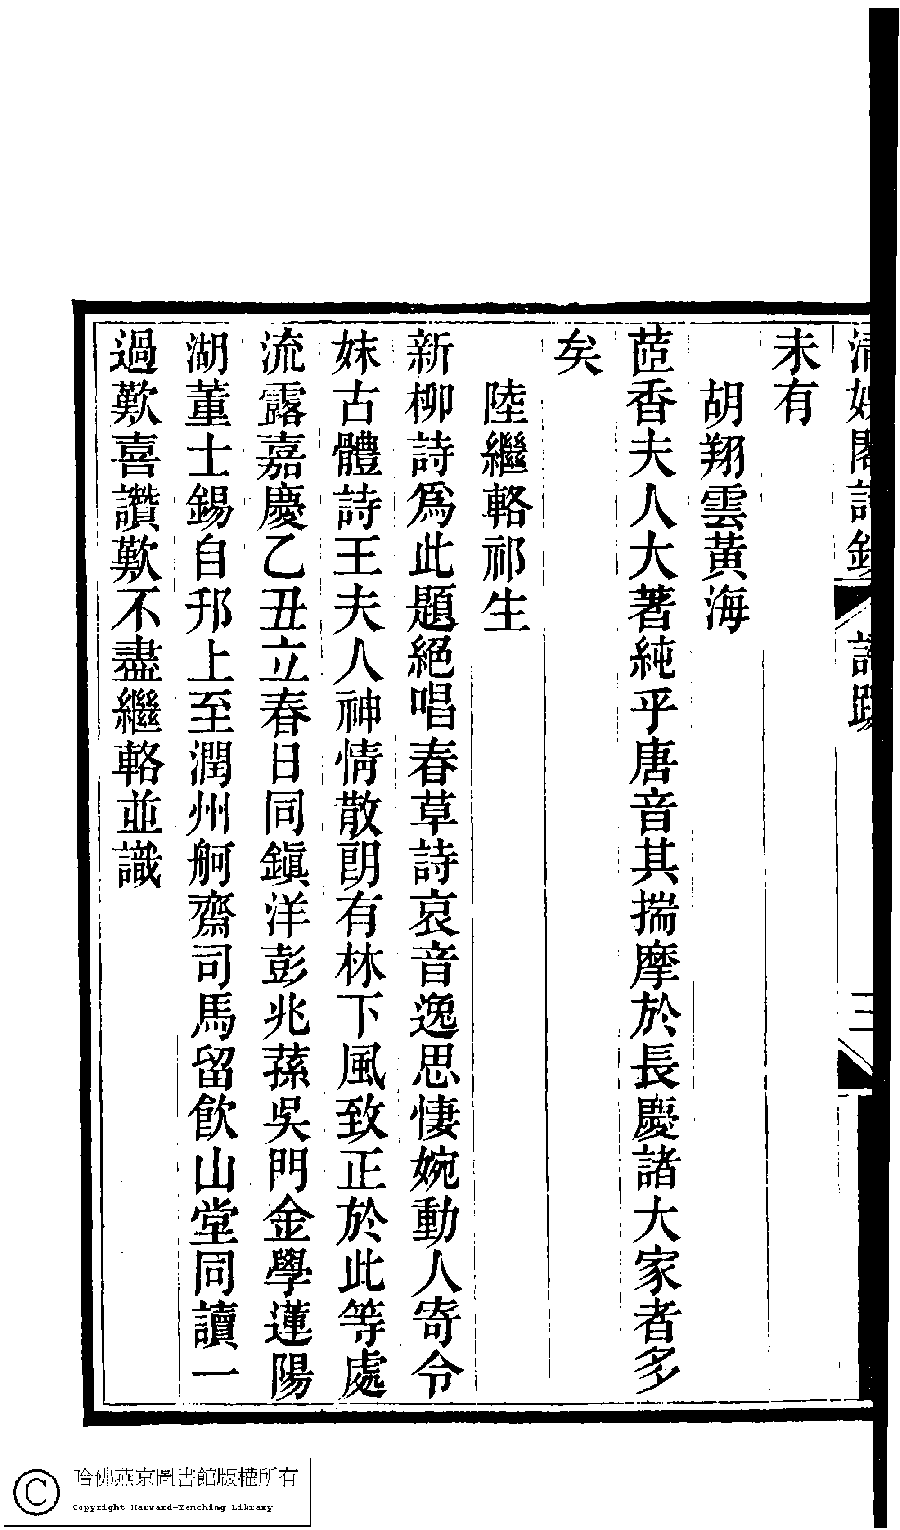 清娛閣詩鈔 詩題 三
未有
胡翔雲黃海
茝香夫人大著純乎唐音其揣摩於長慶諸大家者多
矣
陸繼輅祁生
新柳詩爲此題絕唱春草詩哀音逸思悽婉動人寄令
妹古體詩王夫人神情散朗有林下風致正於此等處
流露嘉慶乙丑立春日同鎭洋彭兆蓀吳門金學蓮陽
湖董士錫自邗上至潤州舸齋司馬留飮山堂同讀一
過歎喜讚歎不盡繼輅並識
哈佛燕京圖書館版權所有
Copyright Harvard-Yenching Library